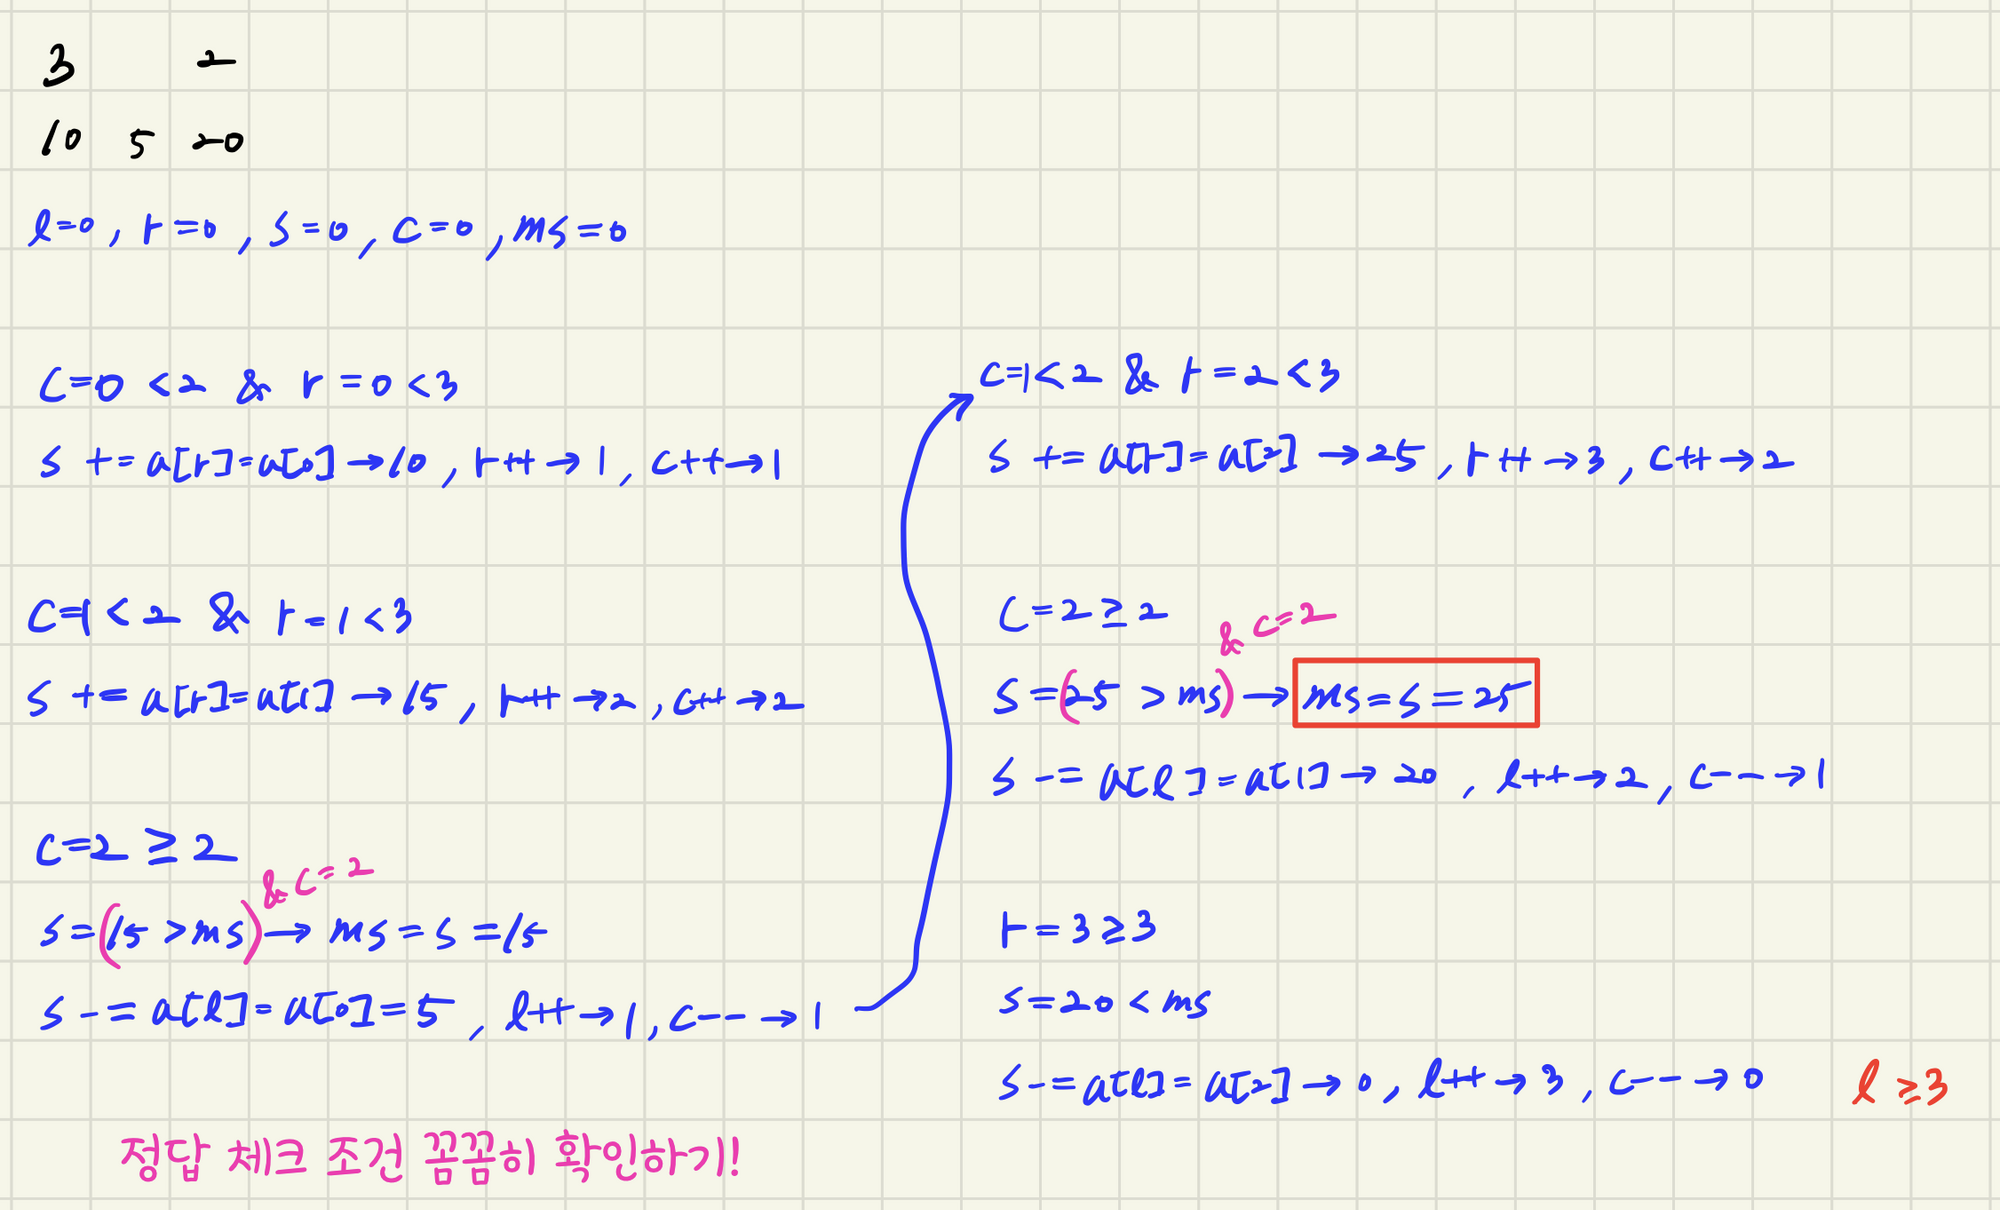 3 2
10 5 20
l=0, r=0, s=0, c=0, ms=0
c=0 <2 & r=0<3
s += a[r]=a[0]→10, r++→1, c++→1
c=1<2 & r=1<3
s += a[r]=a[1]→15, r++→2, c++→2
c=2≥2
& c=2
s=(15>ms)→ms=s=15
s-=a[l]=a[0]=5, l++→1, c--→1
정답 체크 조건 꼼꼼히 확인하기!
c=1<2 & r=2<3
s += a[r]=a[2]→25, r++→3, c++→2
c=2≥2
& c=2
s=(25>ms)→ms=s=25
s-=a[l]=a[1]→20, l++→2, c--→1
r=3≥3
s=20<ms
s-=a[l]=a[2]→0, l++→3, c--→0 l≥3